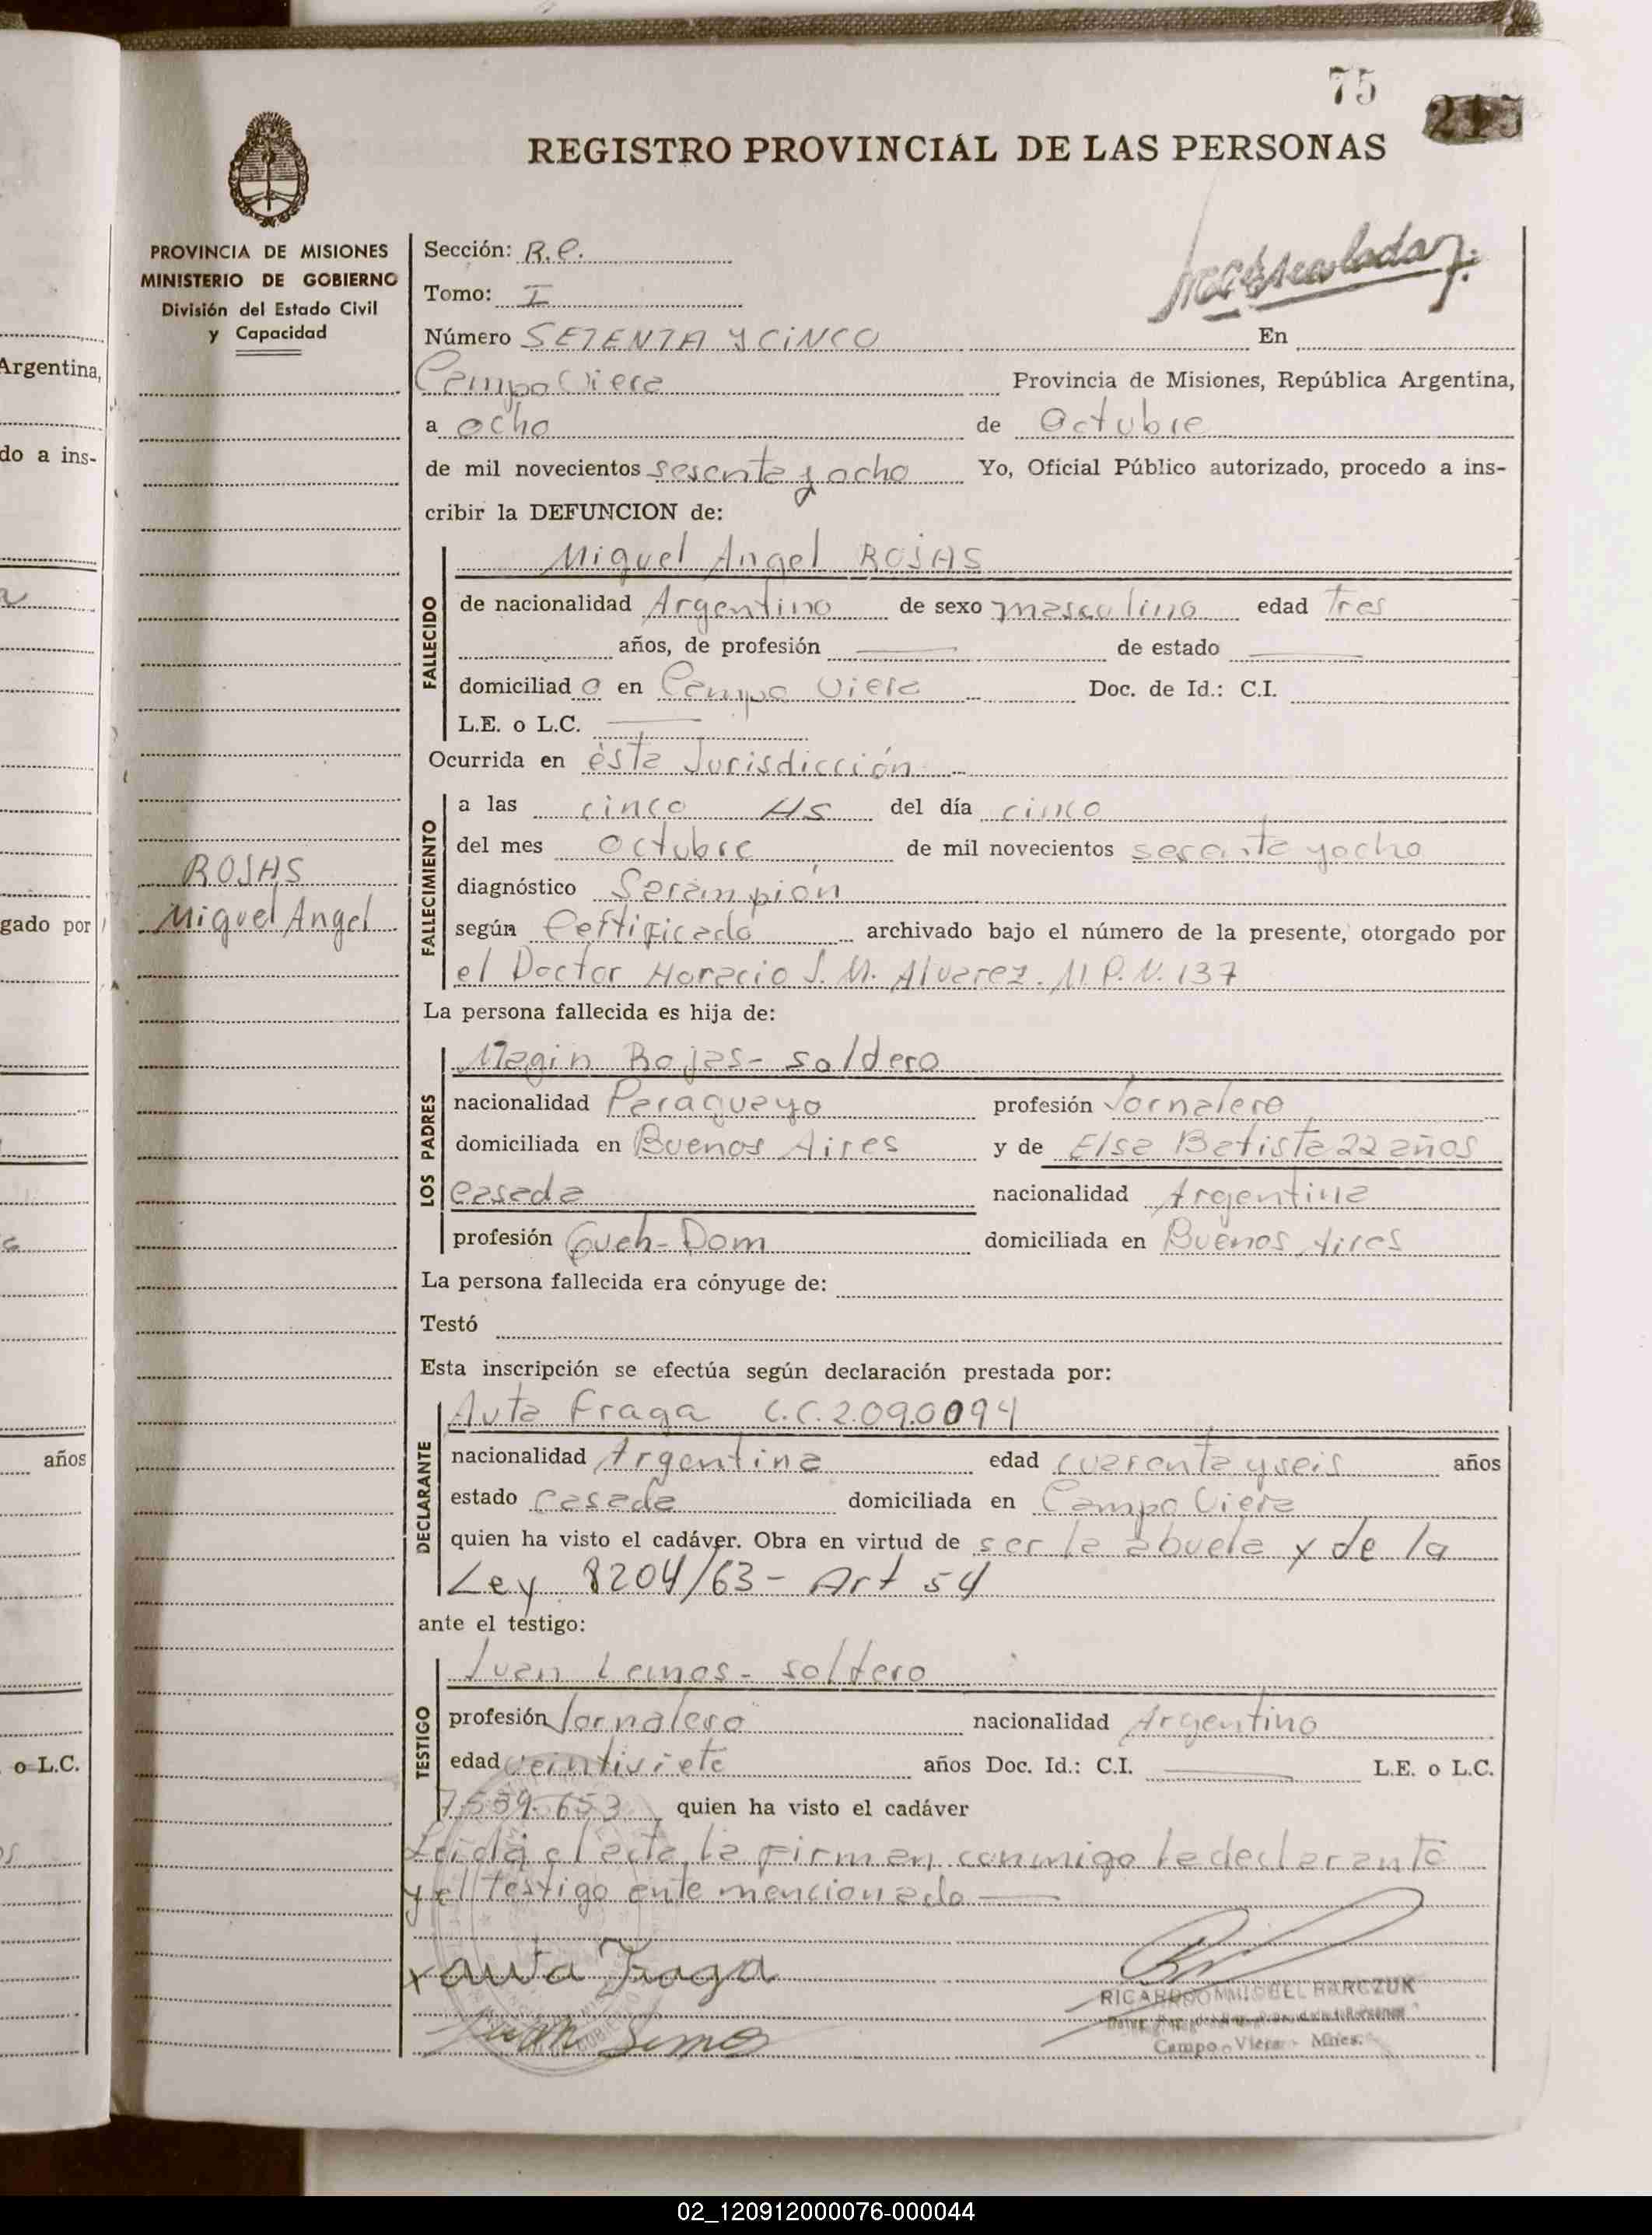 75
REGISTRO PROVINCIAL DE LAS PERSONAS
PROVINCIA DE MISIONES
MINISTERIO DE GOBIERNO
División del Estado Civil
y Capacidad
Sección: R.C.
Tomo: I
Número SETENTA Y CINCO En
Campo Viera Provincia de Misiones, República Argentina,
a ocho de Octubre
de mil novecientos sesenta y ocho Yo, Oficial Público autorizado, procedo a ins-
cribir la DEFUNCION de:
FALLECIDO
Miguel Angel ROJAS
de nacionalidad Argentino de sexo masculino edad tres
años, de profesión — de estado —
domiciliado en Campo Viera Doc. de Id.: C.I.
L.E. o L.C. —
Ocurrida en ésta Jurisdicción
FALLECIMIENTO
a las cinco HS del día cinco
del mes octubre de mil novecientos sesenta y ocho
diagnóstico Serampión
según Certificado archivado bajo el número de la presente, otorgado por
el Doctor Horacio J. M. Alvarez. M.P.N. 137
ROJAS
Miguel Angel
La persona fallecida es hija de:
LOS PADRES
Magin Rojas- soldero
nacionalidad Paraguayo profesión Jornalero
domiciliada en Buenos Aires y de Elsa Batista 22 años
casada nacionalidad Argentina
profesión Queh-Dom domiciliada en Buenos Aires
La persona fallecida era cónyuge de:
Testó
Esta inscripción se efectúa según declaración prestada por:
DECLARANTE
Auta Fraga C.C. 2.090.094
nacionalidad Argentina edad cuarenta y seis años
estado casada domiciliada en Campo Viera
quien ha visto el cadáver. Obra en virtud de ser la abuela y de la
Ley 8204/63 - Art 54
ante el testigo:
TESTIGO
Juan Lemos- soltero
profesión Jornalero nacionalidad Argentino
edad veintisiete años Doc. Id.: C.I. — L.E. o L.C.
7.539.653 quien ha visto el cadáver
Leida el acta, la firman conmigo la declarante
y el testigo ante mencionado —
x Auta Fraga
Juan Lemos
RICARDO MIGUEL BARCZUK
Campo Viera - Mnes.
Argentina,
do a ins-
gado por
años
o L.C.
02_120912000076-000044